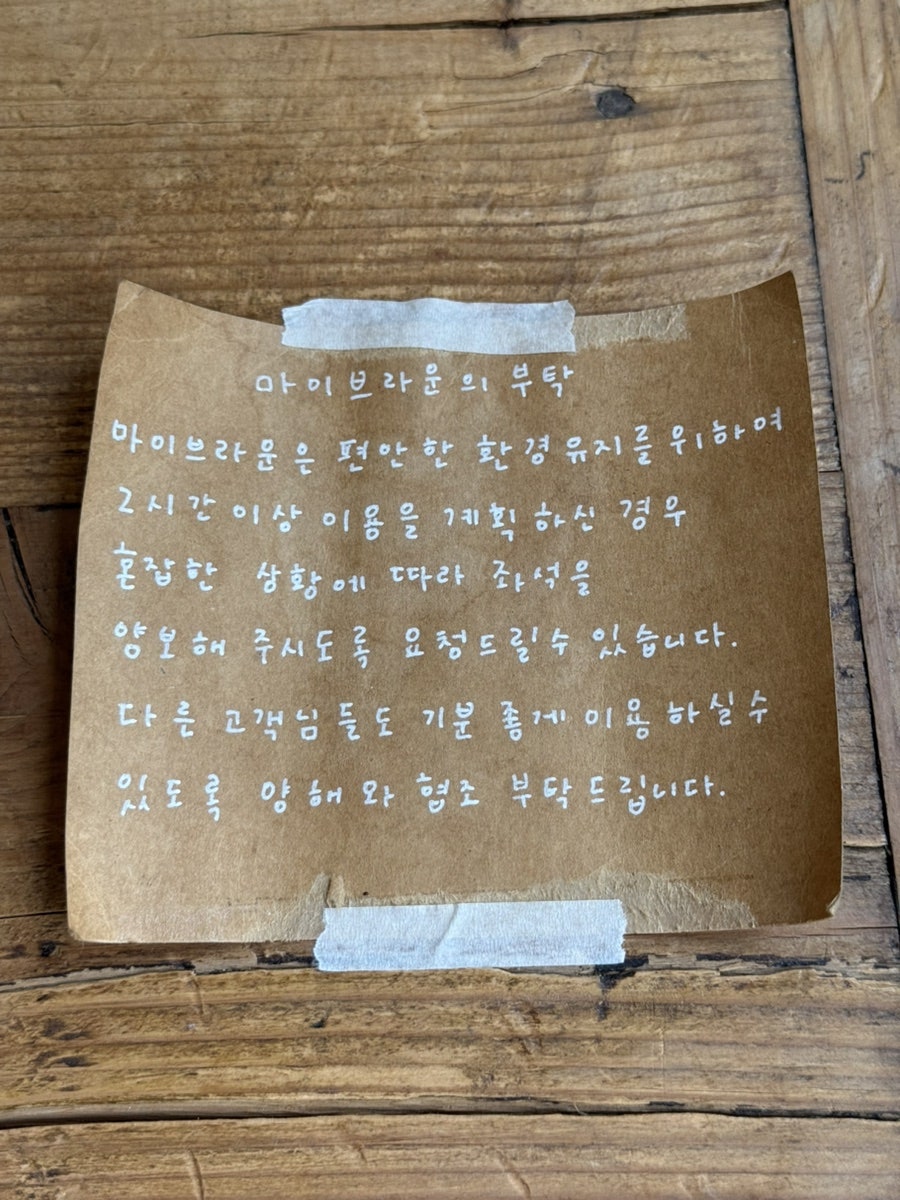 마이브라운의 부탁
마이브라운은 편안한 환경유지를 위하여
2시간 이상 이용을 계획하신 경우
혼잡한 상황에 따라 좌석을
양보해 주시도록 요청드릴수 있습니다.
다른 고객님들도 기분 좋게 이용하실수
있도록 양해와 협조 부탁드립니다.